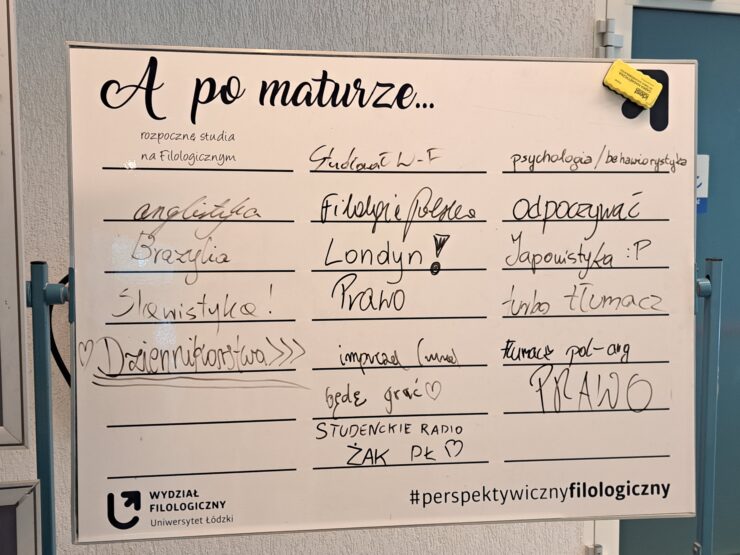 A po maturze...
rozpocznę studia
na Filologicznym
anglistyka
Brazylia
Slawistyka!
♡ Dziennikarstwo >>>
W-F
Filologię Polską
Londyn!
Prawo
będę grać ♡
STUDENCKIE RADIO
ŻAK PŁ ♡
psychologia/behawiorystyka
odpoczywać
Japonistyka :P
turbo tłumacz
tłumacz pol-ang
PRAWO
WYDZIAŁ
FILOLOGICZNY
Uniwersytet Łódzki
#perspektywicznyfilologiczny